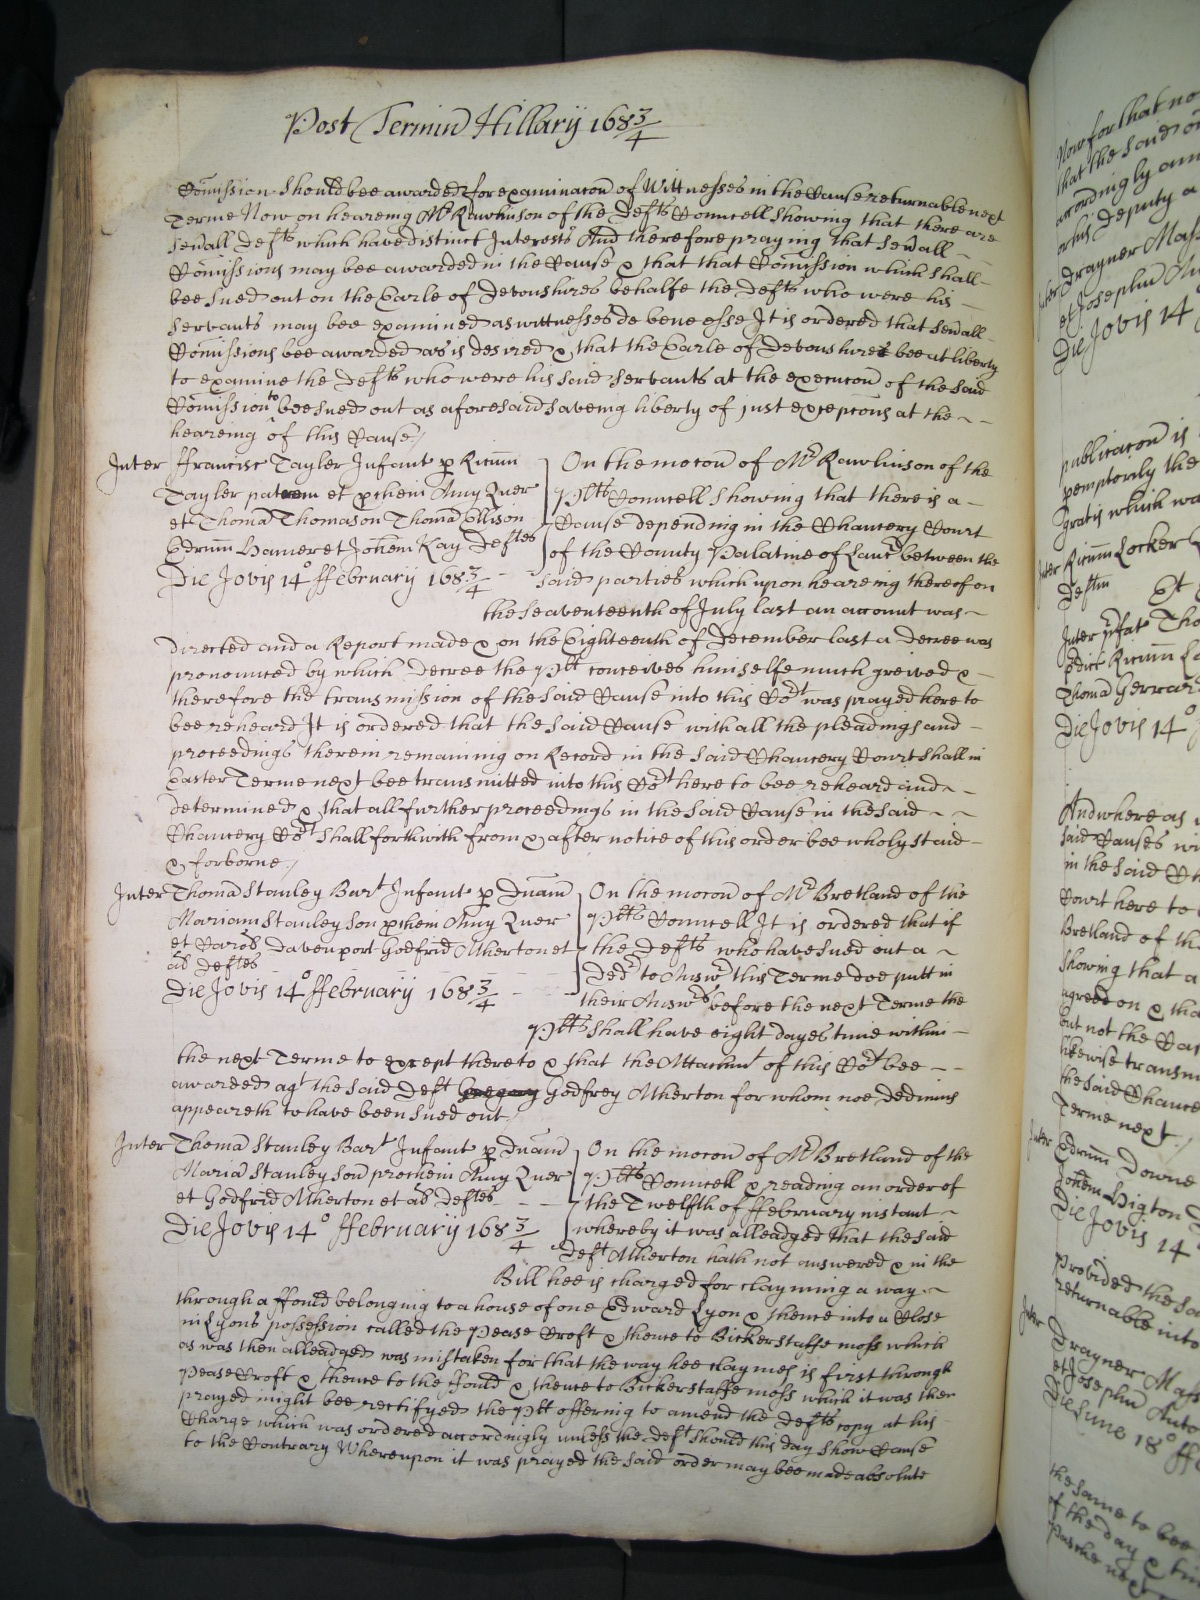 Post Terminū Hillarij 168¾
Com̄ission should bee awarded for examinacōn of Wittnesses in the Cause returnable next
Terme Now on heareing Mr Rawlinson of the Defts Councell showing that there are
sevall Defts which have distinct Interests And therefore praying that sevall
Com̄issions may bee awarded in the Cause & that that Com̄ission which shall
bee sued out on the Earle of Devonshires behalfe the Defts who were his
servants may bee examined as wittnesses de bene esse It is ordered that sevall
Com̄issions bee awarded as is desired & that the Earle of Devonshire bee at liberty
to examine the Defts who were his said servants at the execucōn of the said
Com̄ission to bee sued out as aforesaid saveing liberty of just excepcōns at the
heareing of this Cause /
Inter ffrancisc Tayler Infant p Ricum̄
Tayler patrem et pchein Amy Quer
et Thoma Thomason Thoma Ellison
Edrum̄ Hamer et Johem Kay Deftes
Die Jovis 14o ffebruarij 168¾
On the mocōn of Mr Rawlinson of the
Pltts Councell showing that there is a
Cause depending in the Chancery Court
of the County Palatine of Lancr between the
said parties which upon heareing thereof on
the seaventeenth of July last an account was
directed and a Report made & on the Eighteenth of December last a decree was
pronounced by which decree the Pltt conceives himselfe much greived &
therefore the transmission of the said Cause into this Cort was prayed here to
bee reheard It is ordered that the said Cause with all the pleadings and
proceedings therein remaining on Record in the said Chancery Court shall in
Easter Terme next bee transmitted into this Cort here to bee reheard and
determined & that all further proceedings in the said Cause in the said
Chancery Cort shall forthwith from & after notice of this order bee wholy staid
& forborne /
Inter Thoma Stanley Bart Infant p Dnam̄
Mariam Stanley son pchein Amy Quer
et Carob Davenport Godfrid Atherton et
al Deftes
Die Jovis 14o ffebruarij 168¾
On the mocōn of Mr Bretland of the
Pltts Councell It is ordered that if
the Defts who have sued out a
Ded to Answr this Terme doe putt in
their Answrs before the next Terme the
Pltts shall have eight dayes time within
the next Terme to except thereto & that the Attachmt of this Cort bee
awarded agt the said Deft Godfrey Atherton for whom noe dedimus
appeareth to have been sued out /
Inter Thoma Stanley Bart Infant p Dnam̄
Maria Stanley son prochein Amy Quer
et Godfrid Atherton et al Deftes
Die Jovis 14o ffebruarij 168¾
On the mocōn of Mr Bretland of the
Pltts Councell & reading an order of
the Twelfth of ffebruary instant
whereby it was alleadged that the said
Deft Atherton hath not answered & in the
Bill hee is charged for clayming a way
through a ffould belonging to a house of one Edward Lyon & thence into a Close
in Lyons possession called the Pease Croft & thence to Bickerstaffe moss which
as was then alleadged was mistaken for that the way hee claymes is first through
Pease Croft & thence to the ffould & thence to Bickerstaffe moss which it was then
prayed might bee rectifyed the Pltt offering to amend the Defts copy at his
Charge which was ordered accordingly unless the Deft should this day show Cause
to the Contrary Whereupon it was prayed the said order may bee made absolute
Now for that no
that the said or
accordingly am
or his deputy a
Inter Drayner Mass
et Josephu
Die Jovis 14
publicacōn is
pemptorily the
gratis which wa
Inter Ricum̄ Locker
Deftm
Et
Inter pfat Tho
Edict Ricum̄ Lo
Thoma Gerrard
Die Jovis 14o
And whereas
said Causes wi
in the said Ch
Court here to
Bretland of th
showing that a
agreed on & tha
but not the Cau
likewise transm
the said Chance
Terme next /
Inter Edrum̄ Downe
Johem Higton
Die Jovis 14
Provided the sa
returnable into
Inter Drayner Mass
et Josephu Auto
Die Lune 18o ff
the same to bee
of the day & tim
Pasche next